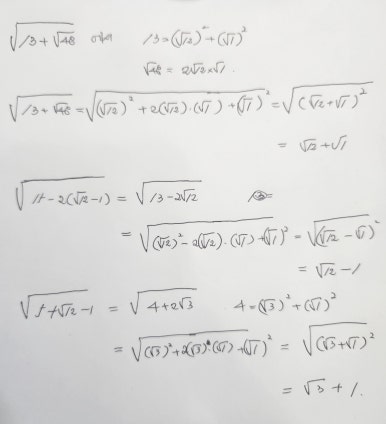 √(13+√48) 에서 13=(√12)²+(√1)²
√48 = 2√12×√1.
√(13+√48) = √((√12)²+2(√12)·(√1)+(√1)²) = √((√12+√1)²)
= √12+√1
√(11-2(√12-1)) = √(13-2√12)
= √((√12)²-2(√12)·(√1)+(√1)²) = √((√12-√1)²)
= √12-1
√(5+√12-1) = √(4+2√3) 4=(√3)²+(√1)²
= √((√3)²+2(√3)·(√1)+(√1)²) = √((√3+√1)²)
= √3+1.